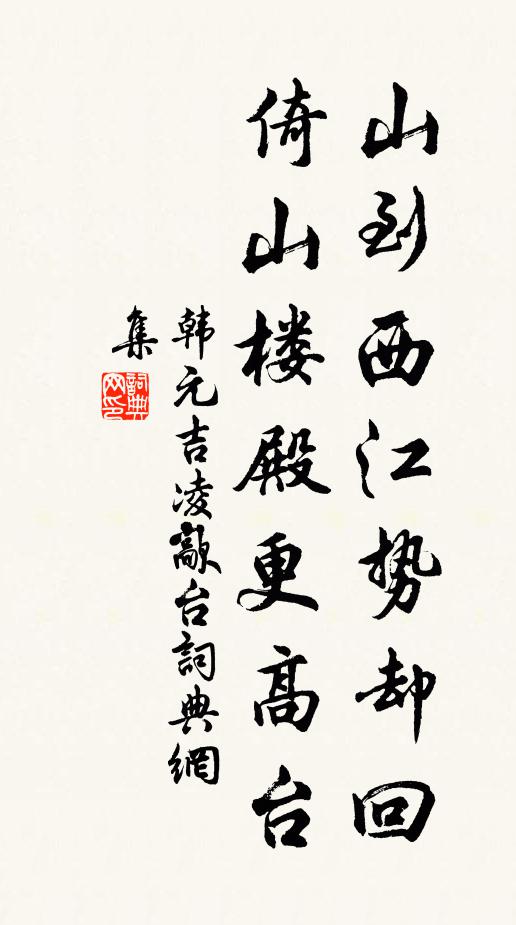 山到西江势却回
倚山楼殿更高台
韩元吉凌歊台詞典網
集
詞典
网印